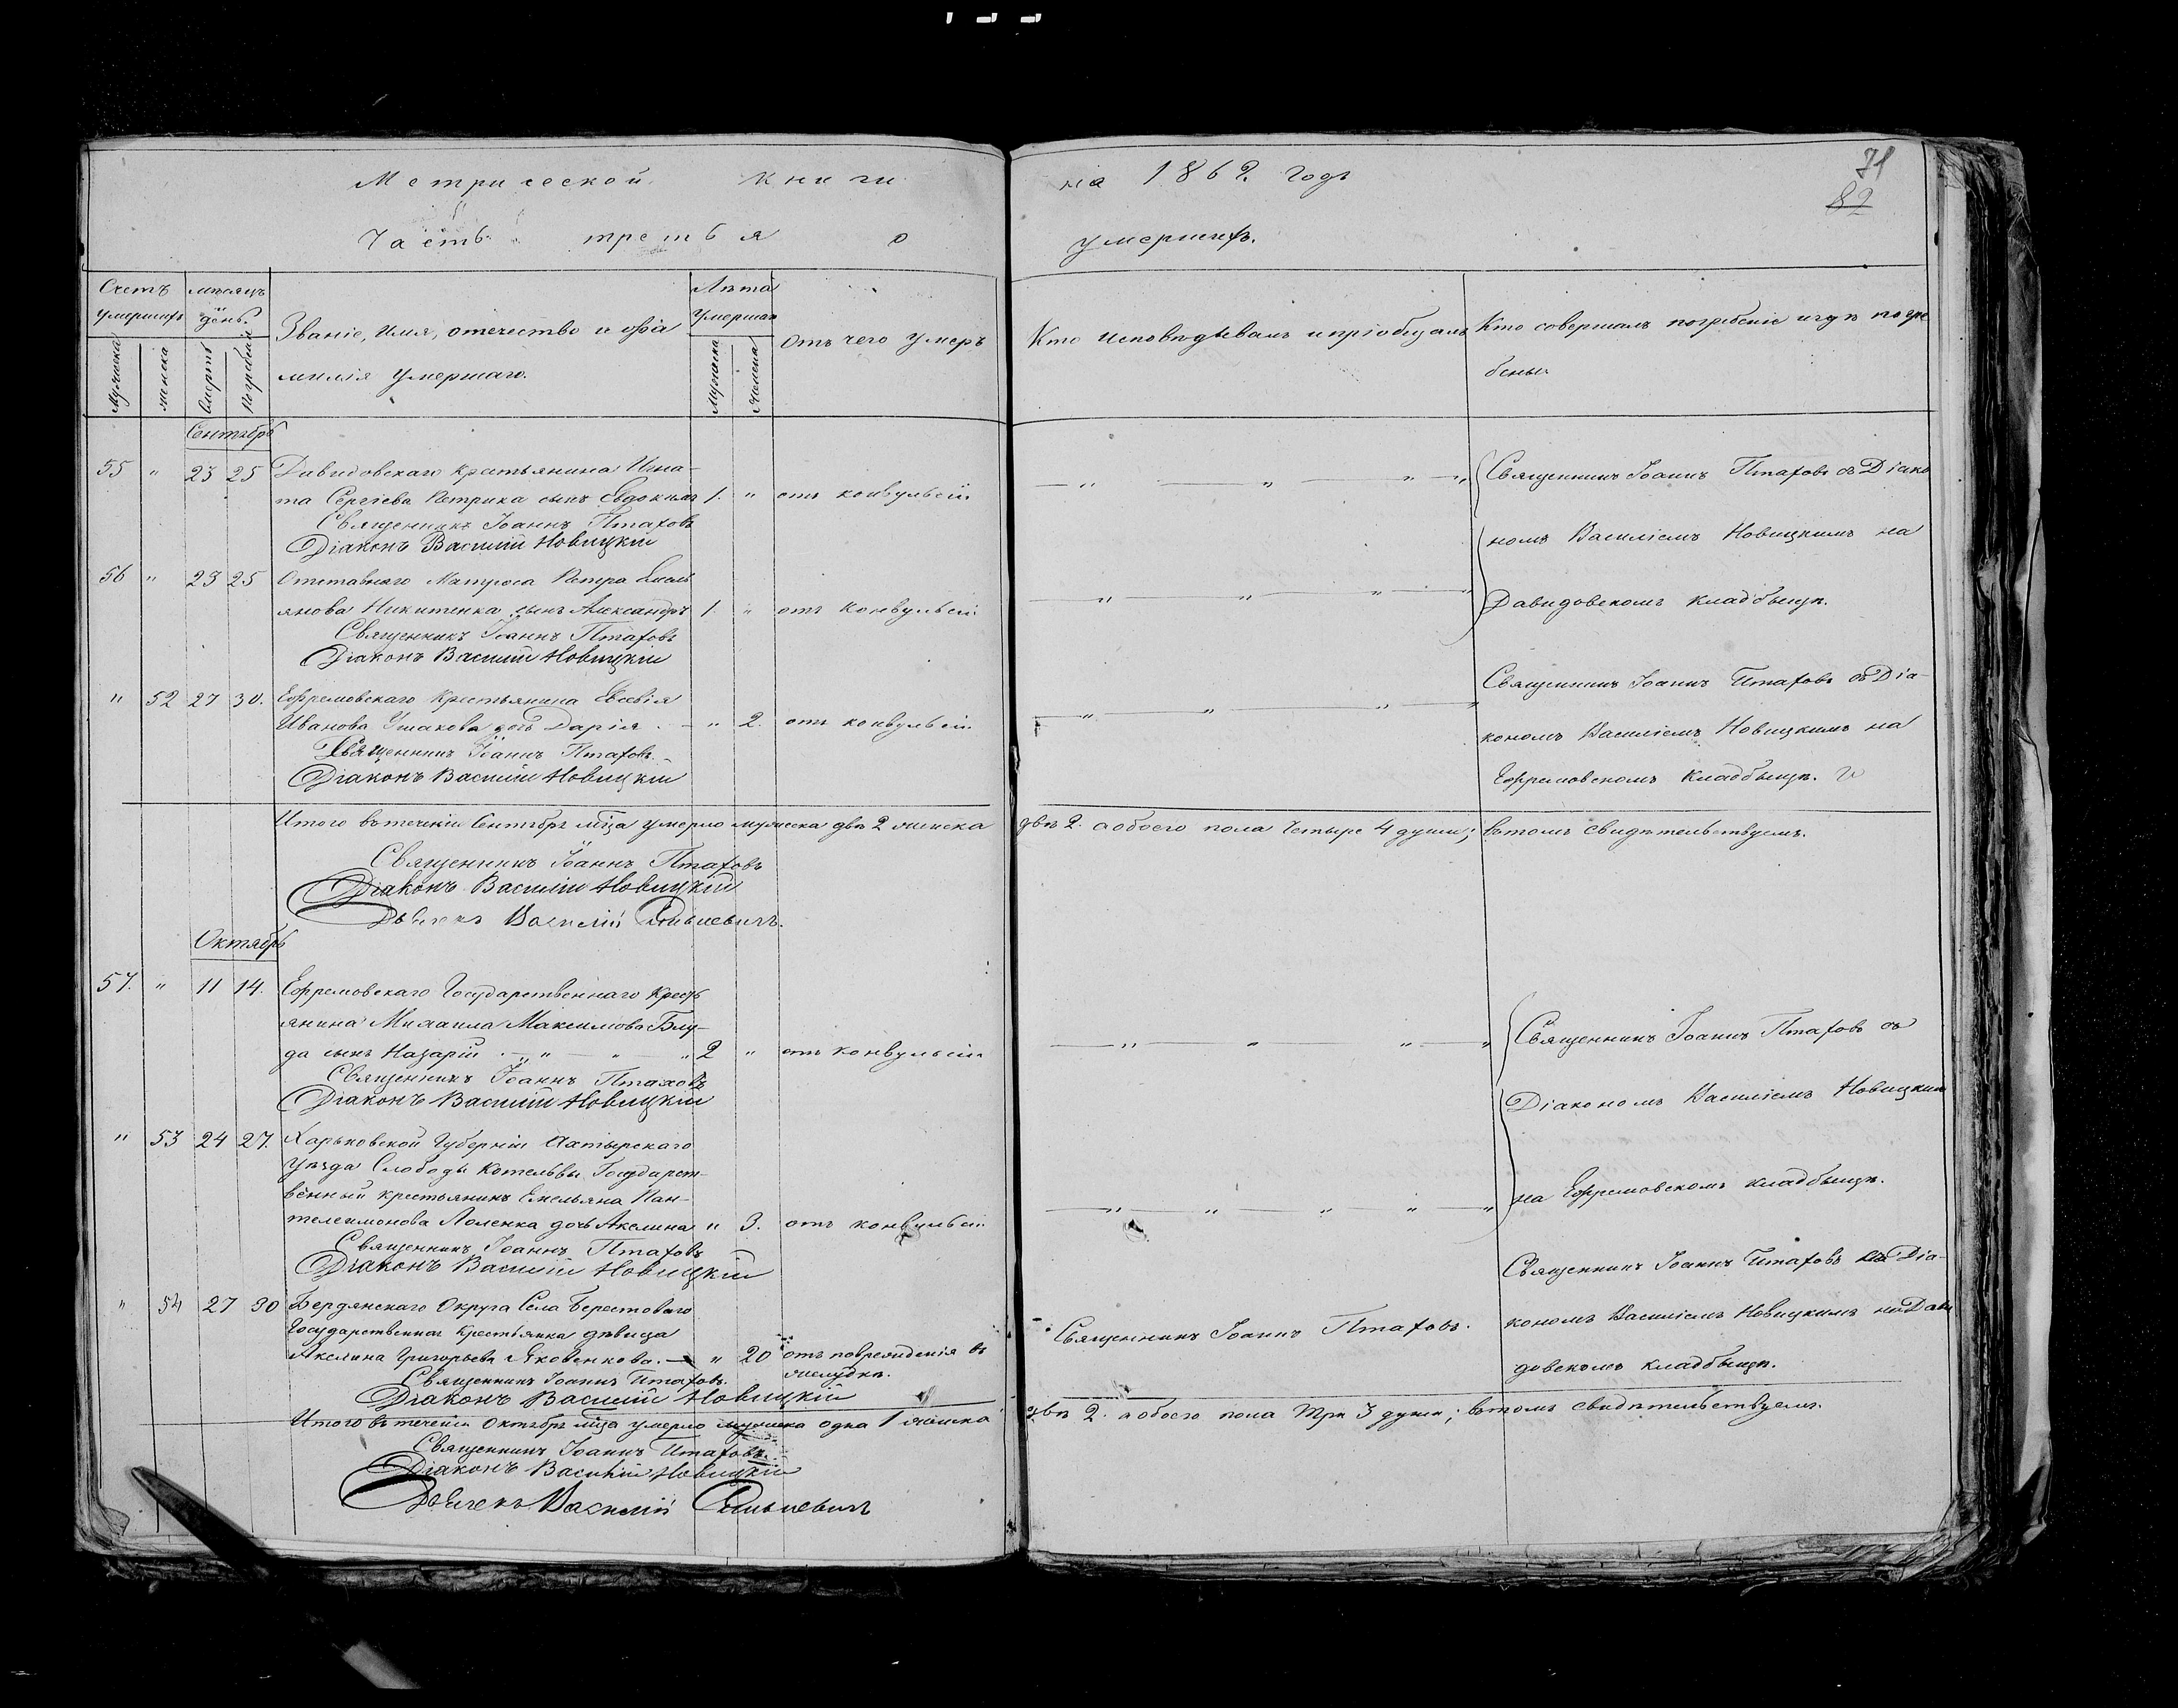 Метрической книги на 1862 годъ
71
82
Часть третья о умершихъ.
Счетъ умершихъ
мѣсяцъ день.
Званіе, Имя, отечество и фа
милія Умершаго.
Лѣта Умершаго
Отъ чего умеръ
Кто исповѣдывалъ и пріобщалъ
Кто совершалъ погребеніе и гдѣ погре
бены
Мужеска
женска
Смерти
Погребенія
Мужеска
Женска
Сентябрь
55 " 23 25 Давидовскаго крестьянина Игна-
та Сергіева Петрика сынъ Евдокимъ 1. " отъ конвульсіи
Священникъ Іоаннъ Птаховъ
Діаконъ Василій Новицкій
Священникъ Іоаннъ Птаховъ съ Діако
номъ Василіемъ Новицкимъ на
Давидовскомъ кладбыщѣ.
56 " 23 25 Отставнаго Матроса Петра Емель
янова Никитенка сынъ Александръ 1. " отъ конвульсіи
Священникъ Іоаннъ Птаховъ
Діаконъ Василій Новицкій
" 52 27 30. Ефремовскаго Крестьянина Евсевія
Иванова Ушакова дочь Дарія " 2. отъ конвульсіи
Священникъ Іоаннъ Птаховъ
Діаконъ Василій Новицкій
Священникъ Іоаннъ Птаховъ съ Діа-
кономъ Василіемъ Новицкимъ на
Ефремовскомъ кладбыщѣ.
Итого въ теченіи Сентябрѣ мѣца умерло мужеска двѣ 2 женска двѣ 2. а обоего пола четыре 4 души; в томъ свидѣтельствуемъ.
Священникъ Іоаннъ Птаховъ
Діаконъ Василій Новицкій
Василій
Октябрь
57. " 11 14. Ефремовскаго Государственнаго Кресть
янина Михаила Максимова Блу-
да сынъ Назарій " 2 " отъ конвульсіи
Священникъ Іоаннъ Птаховъ
Діаконъ Василій Новицкій
Священникъ Іоаннъ Птаховъ съ
Діакономъ Василіемъ Новицкимъ
на Ефремовскомъ кладбыщѣ.
" 53 24 27. Харьковской Губерніи Ахтырскаго
Уѣзда Слободы Котельвы Государст-
венный крестьянинъ Емельяна Пан-
телеимонова Лоленка дочь Акелина " 3. отъ конвульсіи
Священникъ Іоаннъ Птаховъ
Діаконъ Василій Новицкій
" 54 27 30 Бердянскаго Округа Села Берестоваго
Государственная Крестьянка дѣвица
Акелина Григорьева Яковенкова. " 20 отъ поврежденія въ
желудкѣ.
Священникъ Іоаннъ Птаховъ.
Діаконъ Василій Новицкій
Священникъ Іоаннъ Птаховъ.
Священникъ Іоаннъ Птаховъ съ Діа-
кономъ Василіемъ Новицкимъ на Дави
довскомъ кладбыщѣ.
Итого въ теченіи Октябрѣ мѣца умерло мужеска одна 1 женска двѣ 2. а обоего пола три 3 души; в томъ свидѣтельствуемъ.
Священникъ Іоаннъ Птаховъ.
Діаконъ Василій Новицкій
Василій